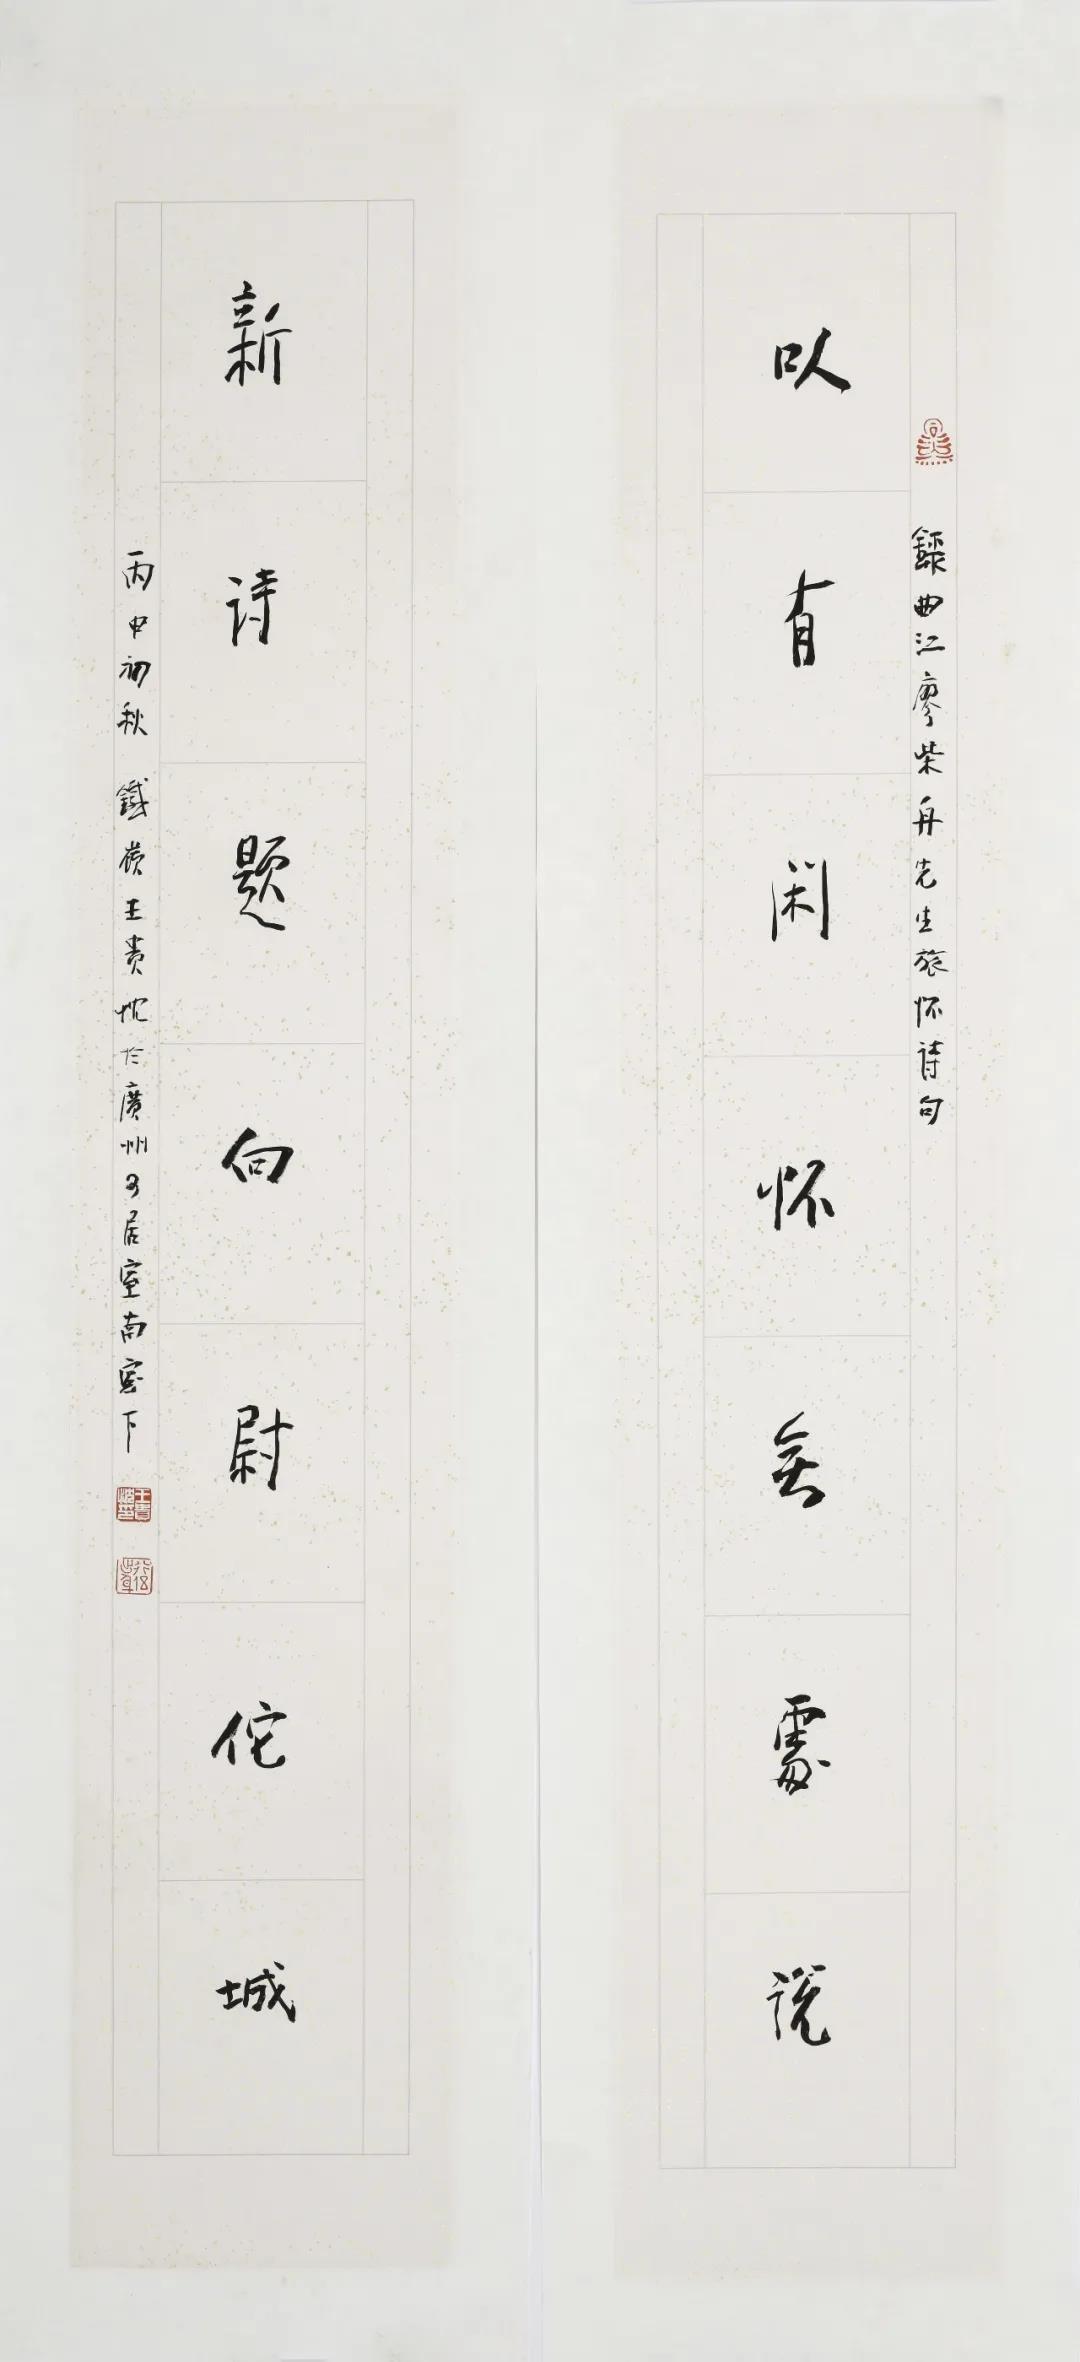 以有闲怀无處说
録曲江廖柴舟先生旅怀诗句
新诗题向尉佗城
丙申初秋 鐵嶺王贵忱於廣州可居室南窗下
王貴忱印